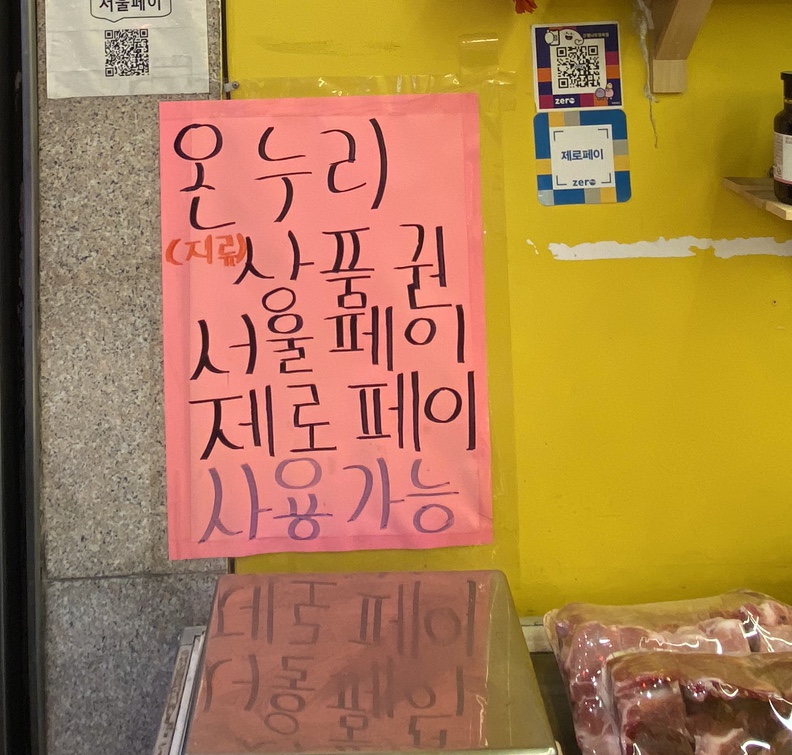 서울페이
zero
제로페이
zero
온누리
(지류)상품권
서울페이
제로페이
사용가능